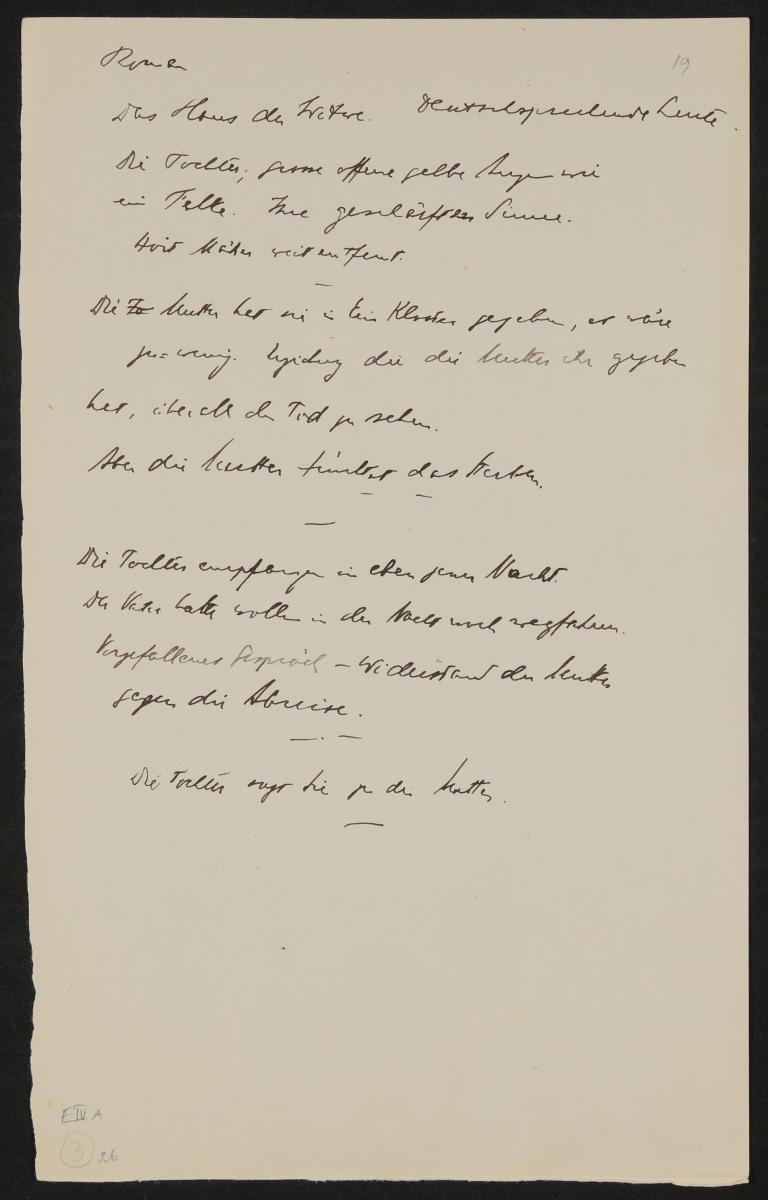 Roman
19
Das Haus der Witwe. Deutschsprechende Leute.
Die Tochter, grosse offene gelbe Augen wie
ein Falke. Ihre geschärften Sinne.
Hört Mäher weit entfernt.
Die To Mutter hat sie in ein Kloster gegeben, es wäre
zu wenig. die die Mutter ihr gegeben
hat, überall den Tod zu sehen.
Aber die Mutter fürchtet das Sterben.
Die Tochter empfangen in eben jener Nacht.
Der Vater hatte wollen in der Nacht noch wegfahren.
Vorgefallenes Gespräch – Widerstand der Mutter
gegen die Abreise.
Die Tochter sagt Sie zu der Mutter.
E IV A
3 26